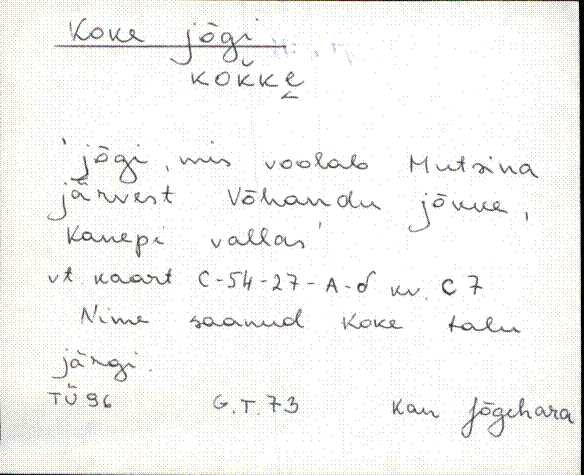 Koke jõgi
KOKKE
'jõgi, mis voolab Mutsina
järvest Võhandu jõkke,
Kanepi vallas'
vt. kaart C-54-27-A-d kv. C7
Nime saanud Koke talu
järgi.
TÜ 96 G.T. 73 Kan Jõgehara